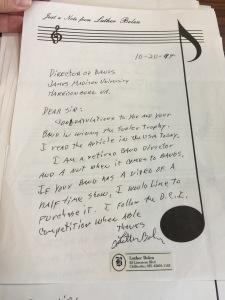 Just a Note from Luther Bolen
10-20-94
Director of Bands
James Madison University
Harrisonburg VA.
Dear Sir:
Congratulations to you and your
Band in winning the Sudler Trophy.
I read the article in the USA Today.
I am a retired Band Director
and a nut when it comes to Bands.
If your band has a video of a
half time show, I would like to
purchase it. I follow the D.C.I.
competition when able
Thanks
Luther Bolen
Luther Bolen
Chillicothe, OH